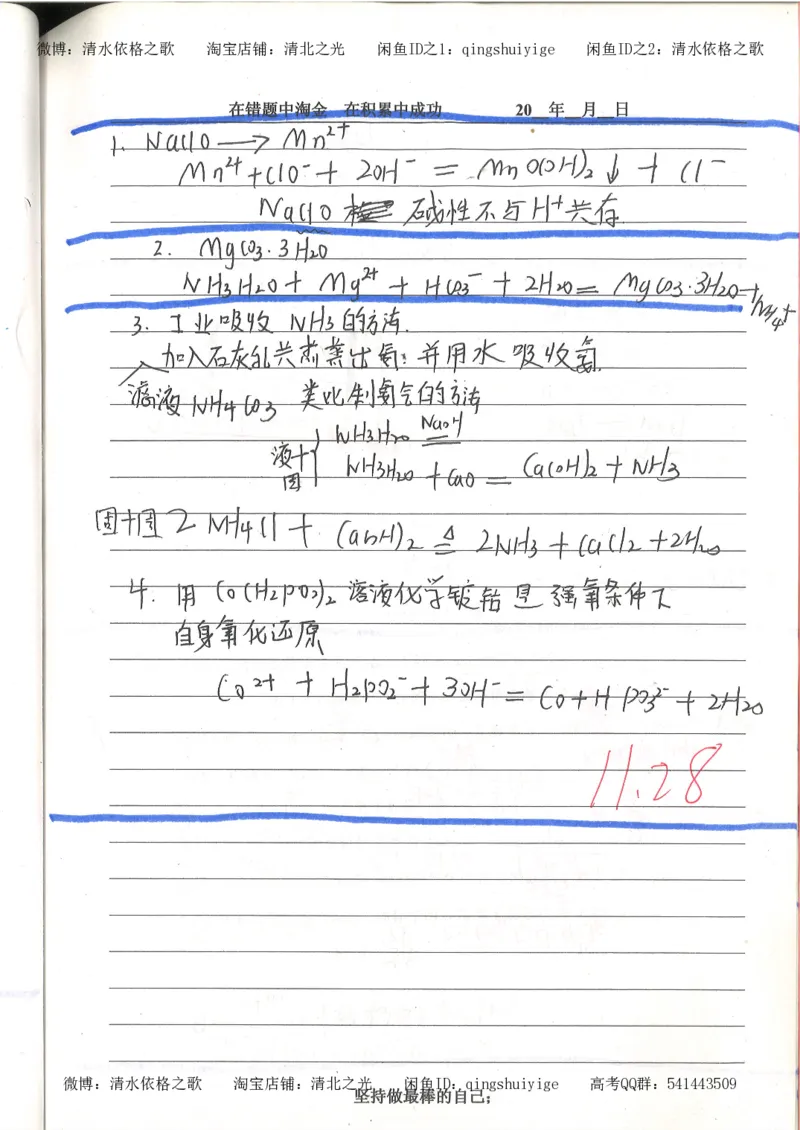 微博：清水依格之歌 淘宝店铺：清北之光 闲鱼ID之1：qingshuiyige 闲鱼ID之2：清水依格之歌
在错题中淘金 在积累中成功 20__年__月__日
1. NaClO ⟶ Mn²⁺
Mn²⁺+ClO⁻+ 2OH⁻ = MnO(OH)₂↓ + Cl⁻
NaClO 碱性不与H⁺共存
2. MgCO₃·3H₂O
NH₃H₂O + Mg²⁺ + HCO₃⁻ + 2H₂O = MgCO₃·3H₂O+NH₄⁺
3. 工业吸收 NH₃的方法.
加入石灰乳共煮蒸出氨；并用水吸收氨
溶液NH₄CO₃ 类比制氨气的方法
NH₃H₂O NaOH =
液+固
NH₃H₂O + CaO = Ca(OH)₂ + NH₃
固+固 2NH₄Cl + Ca(OH)₂ ≜ 2NH₃ + CaCl₂ +2H₂O
4. 用 Co(H₂PO₂)₂ 溶液化学镀钴 是 强氧条件下
自身氧化还原
Co²⁺ + H₂PO₂⁻ + 3OH⁻ = Co+HPO₃²⁻ + 2H₂O
11.28
微博：清水依格之歌 淘宝店铺：清北之光 闲鱼ID：qingshuiyige 高考QQ群：541443509
坚持做最棒的自己；